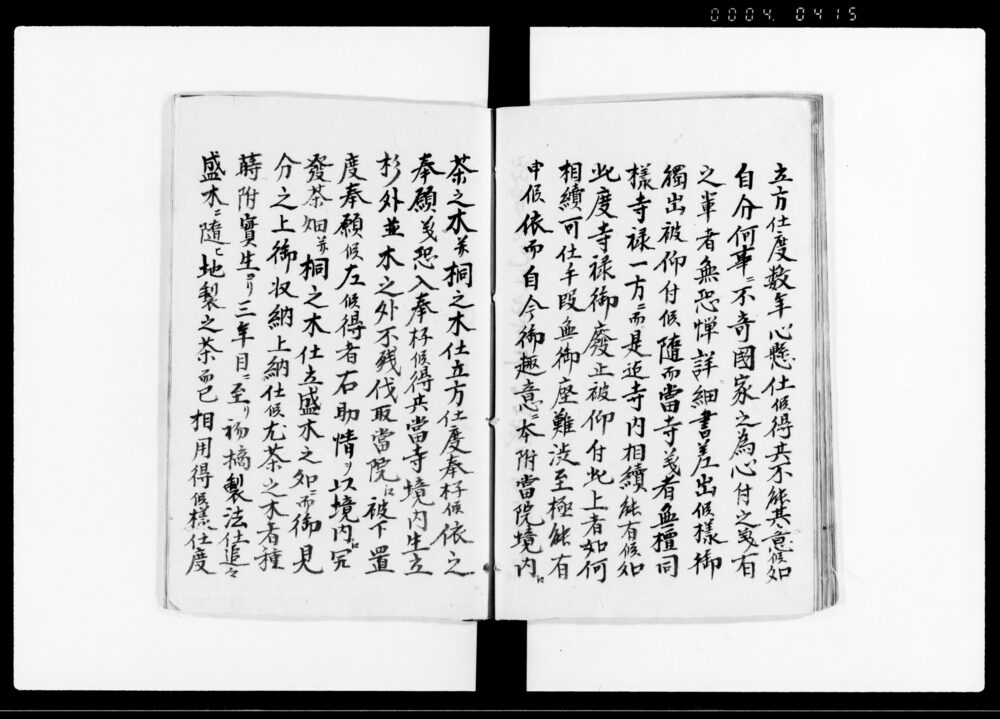 0004 0415
立方仕度数年心懸仕候得共不能其意候如
自分何事ニ不寄國家之為心付之義有
之輩者無恐憚詳細書差出候様御
觸出被仰付候随而當寺義者無檀同
様寺禄一方ニ而是迄寺内相續能有候如
此度寺禄御廢止被仰付此上者如何
相續可仕手段無御座難渋至極能有
申候依而自今御趣意ニ本附當院境内江
茶之木并桐之木仕立方仕度奉存候依之
奉願義恐入奉存候得共當寺境内生立
杉外並木之外不残伐取當院江被下置
度奉願候左候得者右助情ヲ以境内江宛
發茶畑并桐之木仕立盛木之如ニ而御見
分之上御収納上納仕候尤茶之木者種
蒔附實生ヨリ三年目ニ至リ初摘製法仕追々
盛木ニ随ヒ地製之茶而已相用得候様仕度